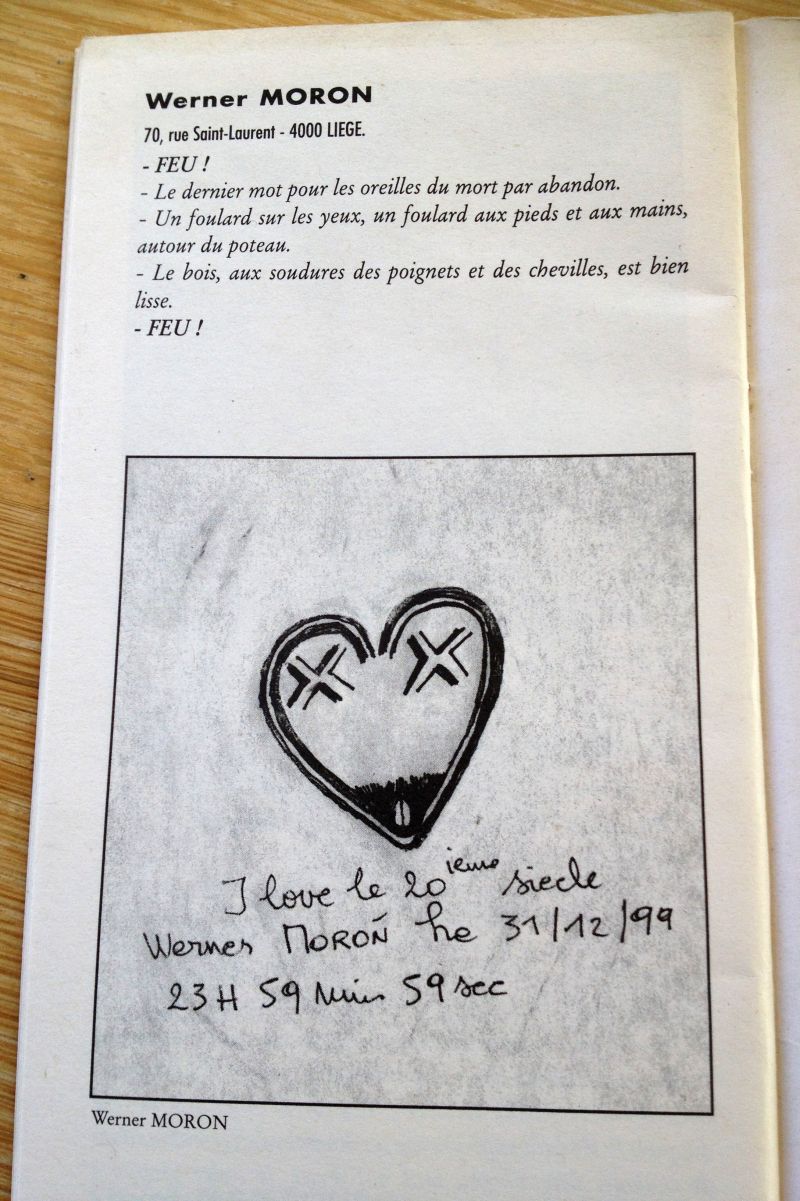 Werner MORON
70, rue Saint-Laurent - 4000 LIEGE.
- FEU !
- Le dernier mot pour les oreilles du mort par abandon.
- Un foulard sur les yeux, un foulard aux pieds et aux mains,
autour du poteau.
- Le bois, aux soudures des poignets et des chevilles, est bien
lisse.
- FEU !
I love le 20ieme siecle
Werner MORON né 31/12/99
23 H 59 Min 59 sec
Werner MORON